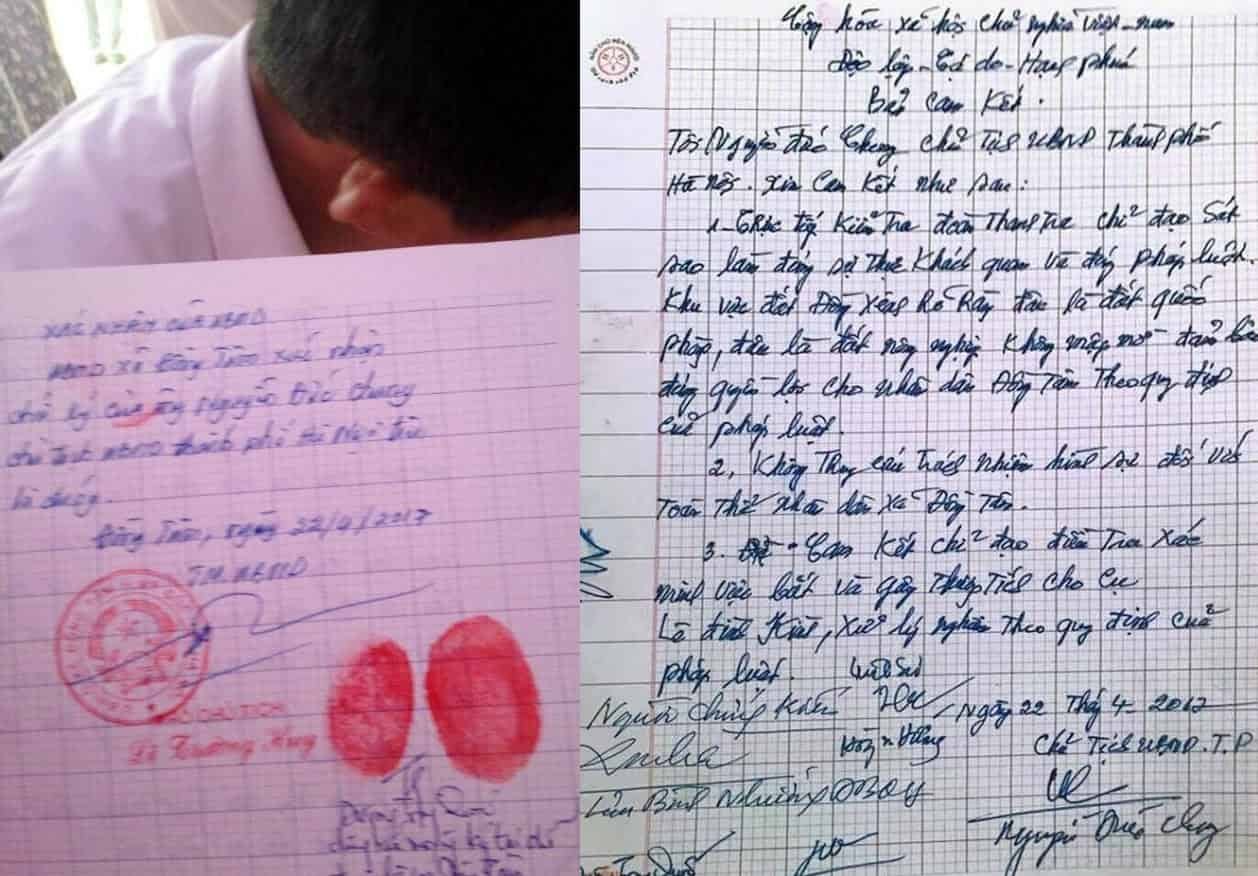 XÁC NHẬN CỦA UBND
UBND xã Đồng Tâm xác nhận
chữ ký của ông Nguyễn Đức Chung
chủ tịch UBND thành phố Hà Nội trên
là đúng.
Đồng Tâm, ngày 22/4/2017
TM. UBND
PHÓ CHỦ TỊCH
Cộng hòa xã hội chủ nghĩa việt - nam
Độc lập - Tự do - Hạnh phúc
Bản Cam Kết.
Tôi Nguyễn đức Chung chủ Tịch UBND Thành phố
Hà nội. xin Cam Kết như sau:
1 - Trực tiếp Kiểm Tra đoàn Thanh Tra chỉ đạo Sát
sao làm đúng sự thực Khách quan và đúng pháp luật.
Khu vực đất Đồng Xênh Rõ Ràng đâu là đất quốc
phòng, đâu là đất nông nghiệp Không mập mờ đảm bảo
đúng quyền lợi cho nhân dân Đồng Tâm Theo quy định
của pháp luật.
2, Không Truy cứu Trách nhiệm hình sự đối với
Toàn Thể nhân dân xã Đồng Tâm.
3. Cam Kết chỉ đạo điều Tra Xác
minh việc bắt và gây Thương Tích cho Cụ
Lê đình Kình, Xử lý nghiêm Theo quy định của
pháp luật.
Người chứng Kiến
Ngày 22 Thg 4 - 2017
Chủ Tịch UBND. T.P
Lưu Bình Nhưỡng ĐBQH
Nguyễn Đức Chung